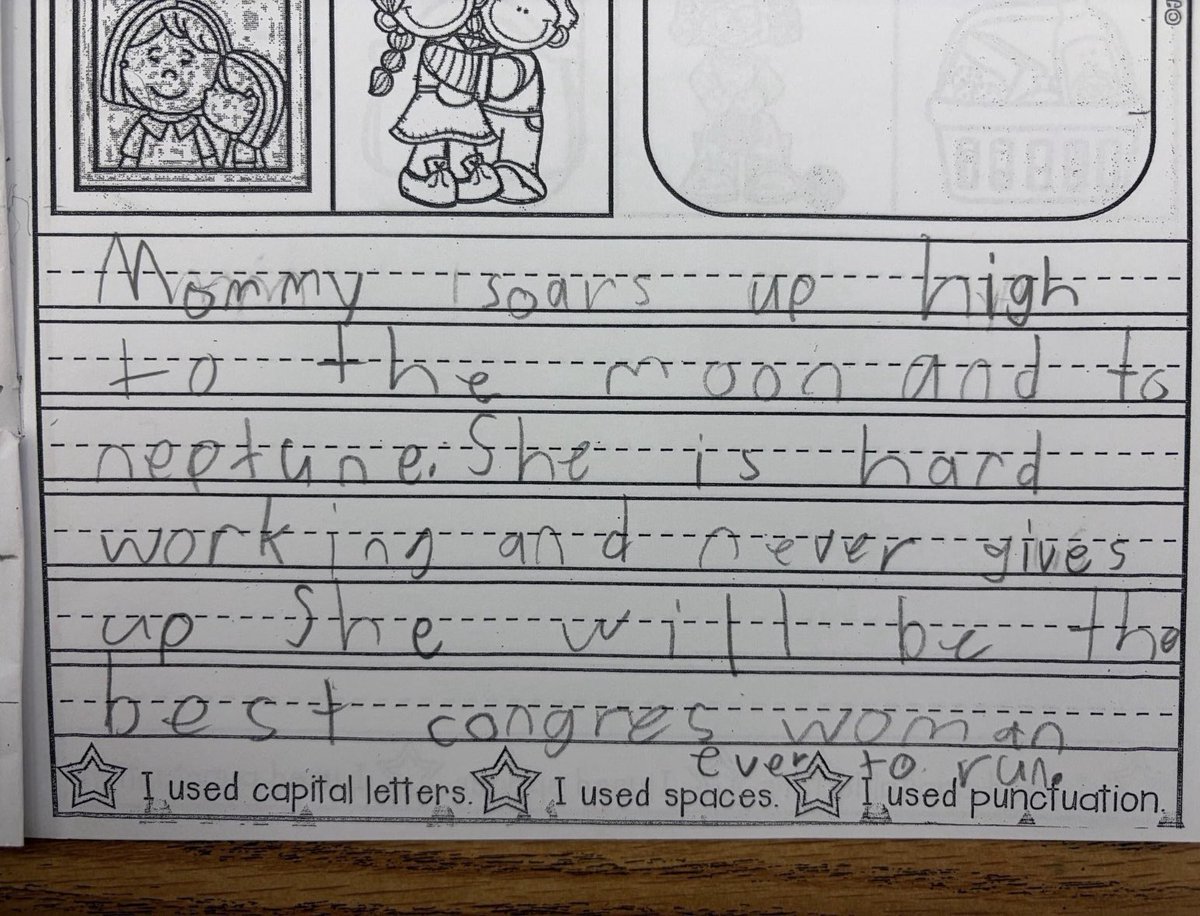 Mommy soars up high
to the moon and to
neptune. She is hard
working and never gives
up She will be the
best congres woman
ever to run.
I used capital letters. I used spaces. I used punctuation.